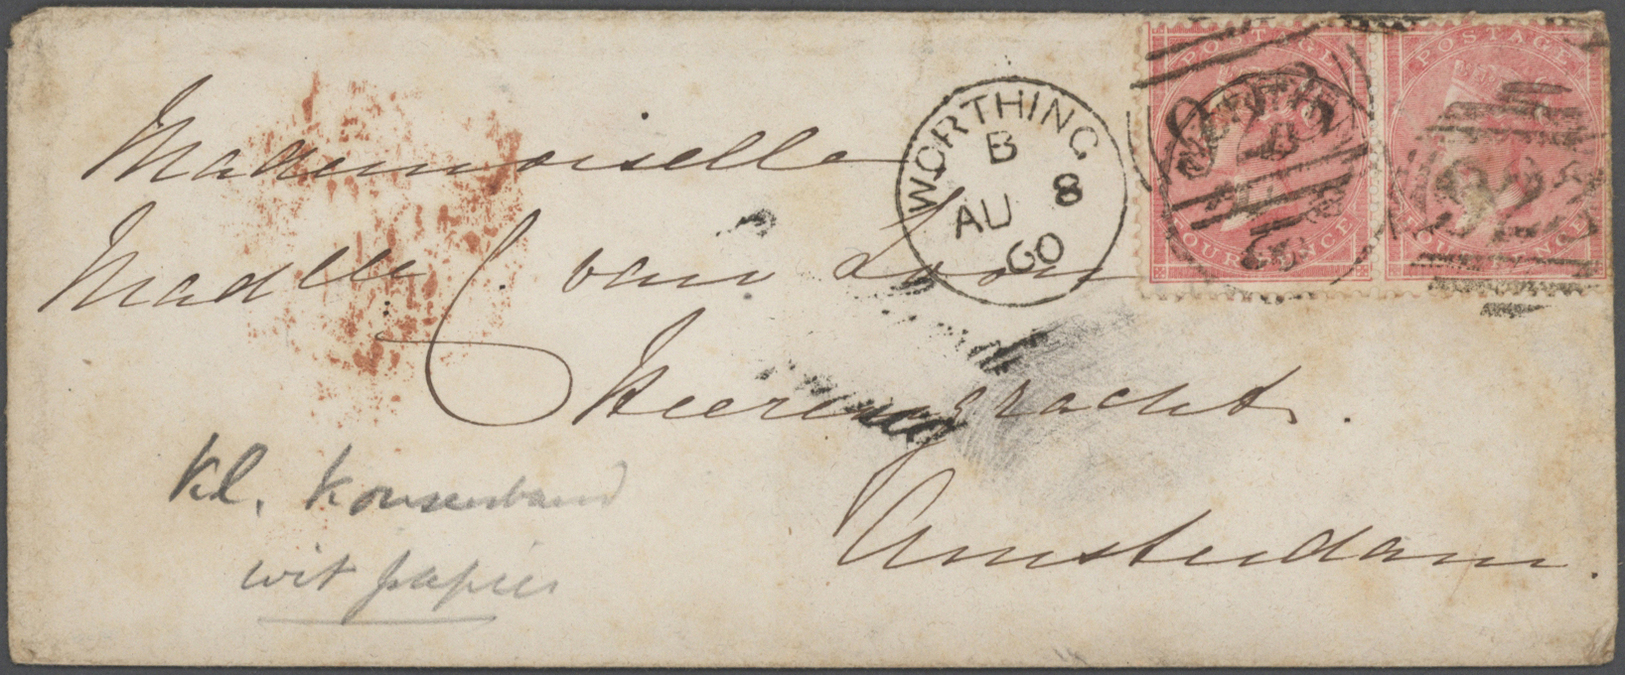 Mademoiselle
Madlle C. van Loon
Heerengracht.
Amsterdam.
WORTHING
B
AU 8
60
POSTAGE
FOUR PENCE
POSTAGE
FOUR PENCE
Kl. Kousenband
wit papier